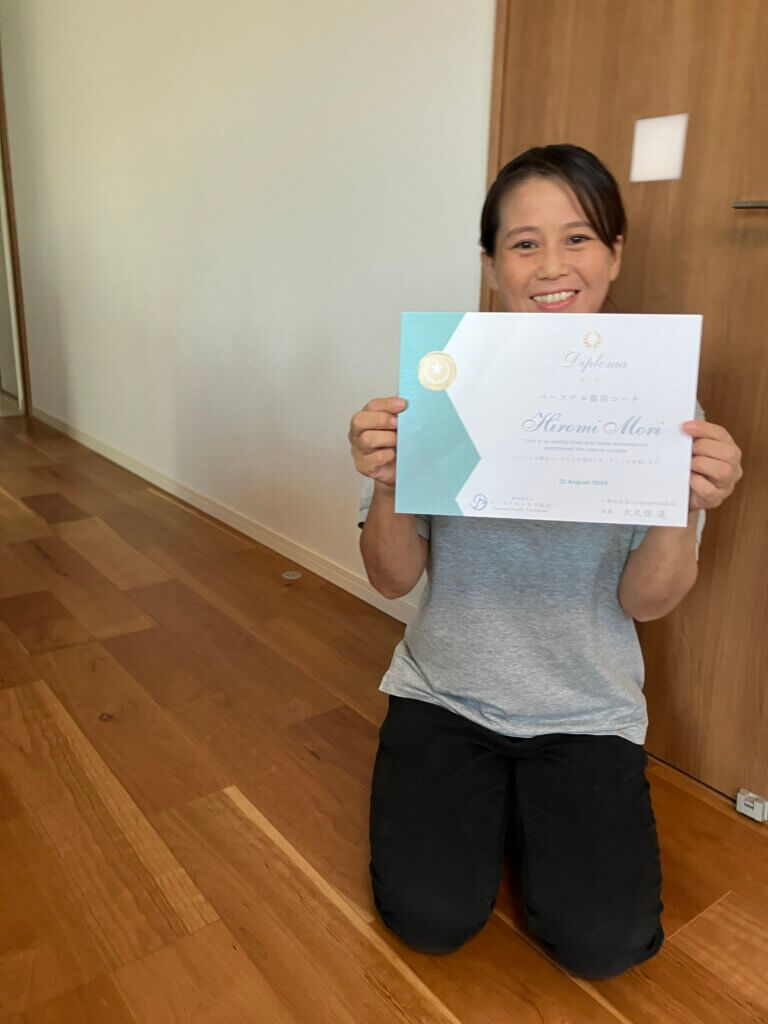 Diploma
修了証
パーソナル腸活コーチ
Hiromi Mori
This is to certify that you have successfully
completed the above course.
22 August 2024
一般社団法人
パーソナルヘルス協会